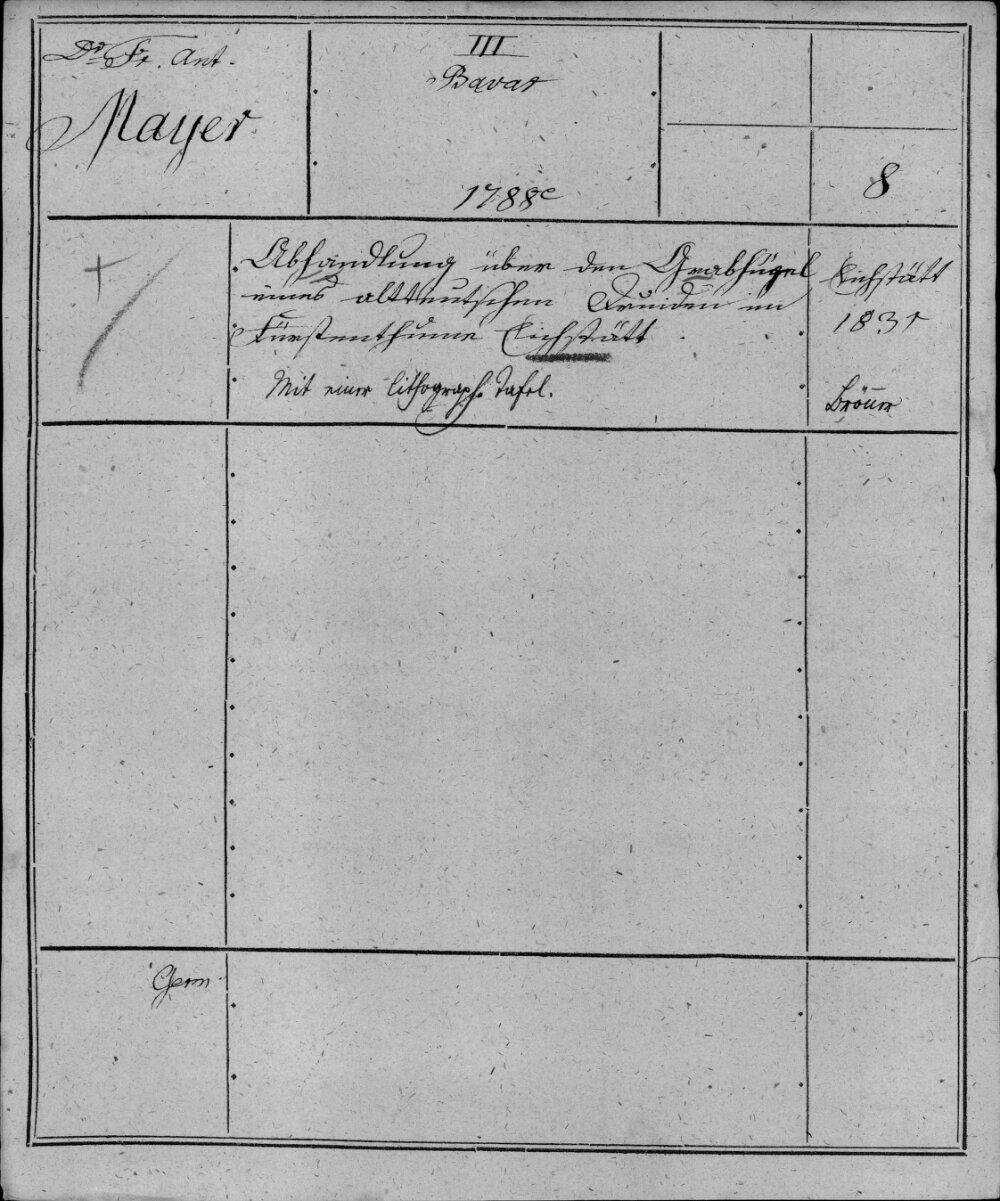 Dr Fr. Ant.
Mayer
III
Bavar
1788e
8
Abhandlung über den Grabhügel
eines altteutschen Druiden im
Fürstenthume Eichstätt
Mit einer lithograph. Tafel.
Eichstätt
1831
Brönner
+
Germ